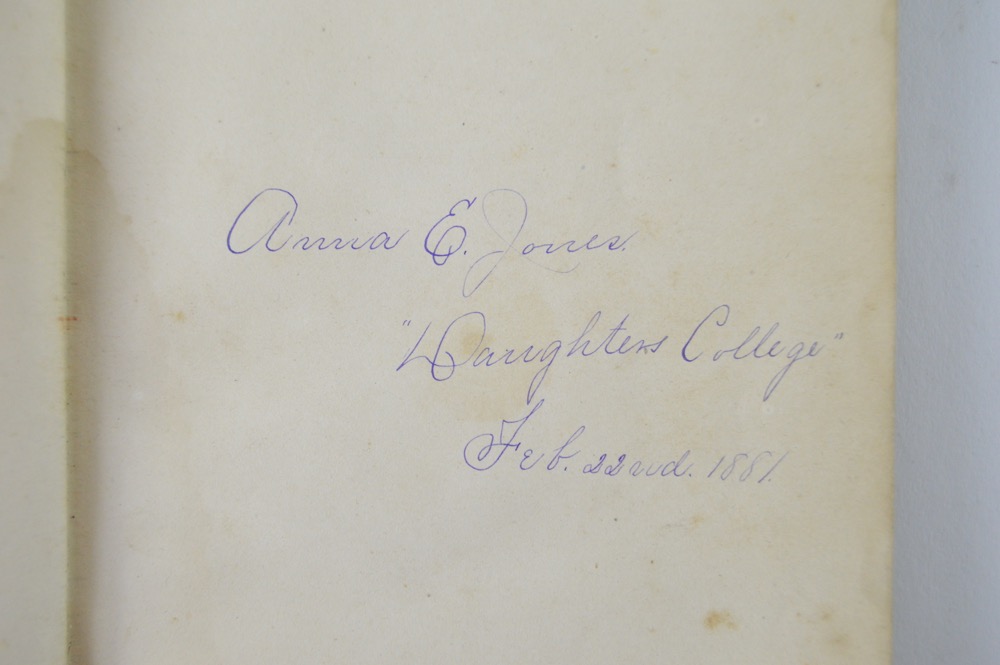 Anna E. Jones.
"Daughters College"
Feb. 22nd. 1881.